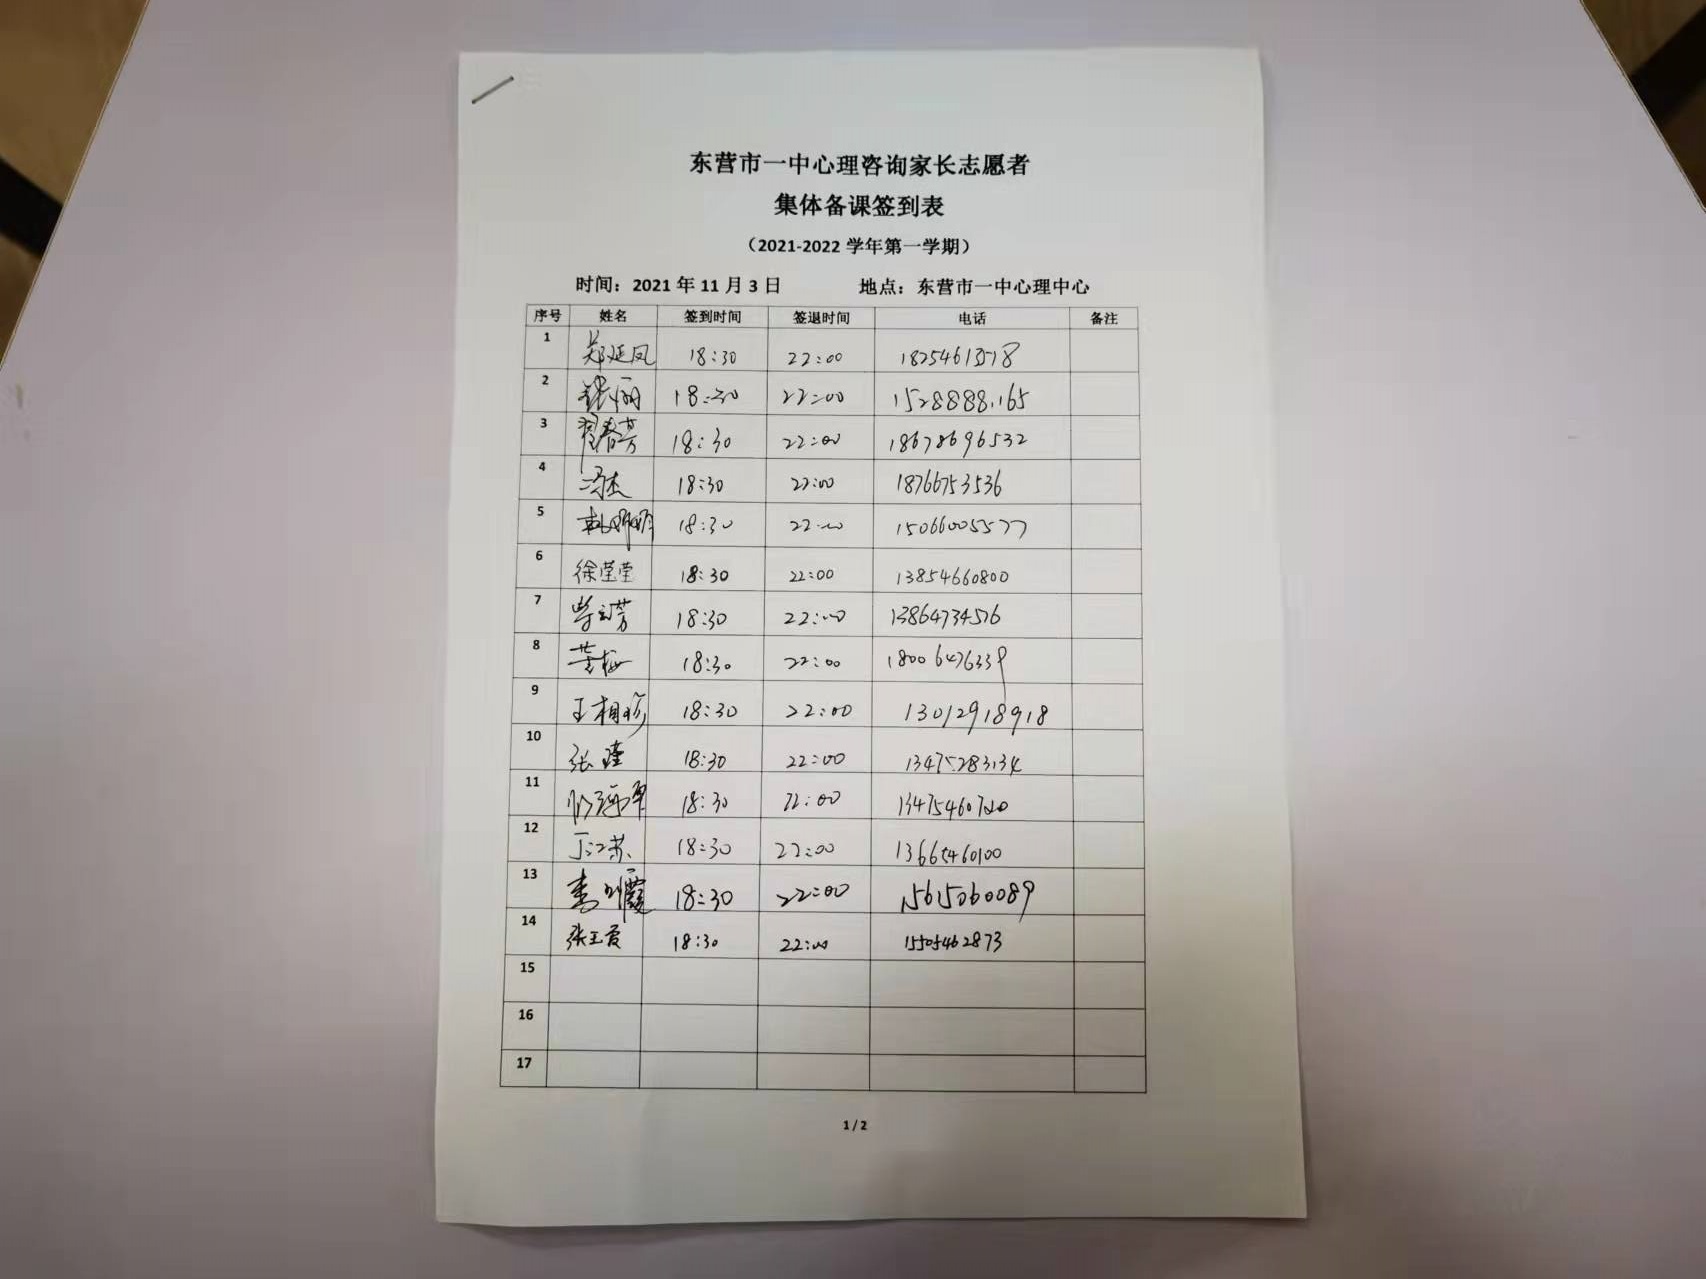 东营市一中心理咨询家长志愿者
集体备课签到表
（2021-2022 学年第一学期）
时间：2021 年 11 月 3 日 地点：东营市一中心理中心
序号 姓名 签到时间 签退时间 电话 备注
1 郑延凤 18:30 22:00
2 张丽 18:30 22:00
3 翟春芳 18:30 22:00 18678696532
4 冯杰 18:30 22:00 18766753536
5 18:30 22:00 15066005577
6 徐莹莹 18:30 22:00 13854660800
7 18:30 22:00 13864734576
8 18:30 22:00 18006476339
9 王相珍 18:30 22:00 13012918918
10 张瑾 18:30 22:00 13475283134
11 18:30 22:00
12 丁江苏 18:30 22:00 13665460100
13 18:30 22:00
14 张玉霞 18:30 22:00 15505462873
15
16
17
1 / 2